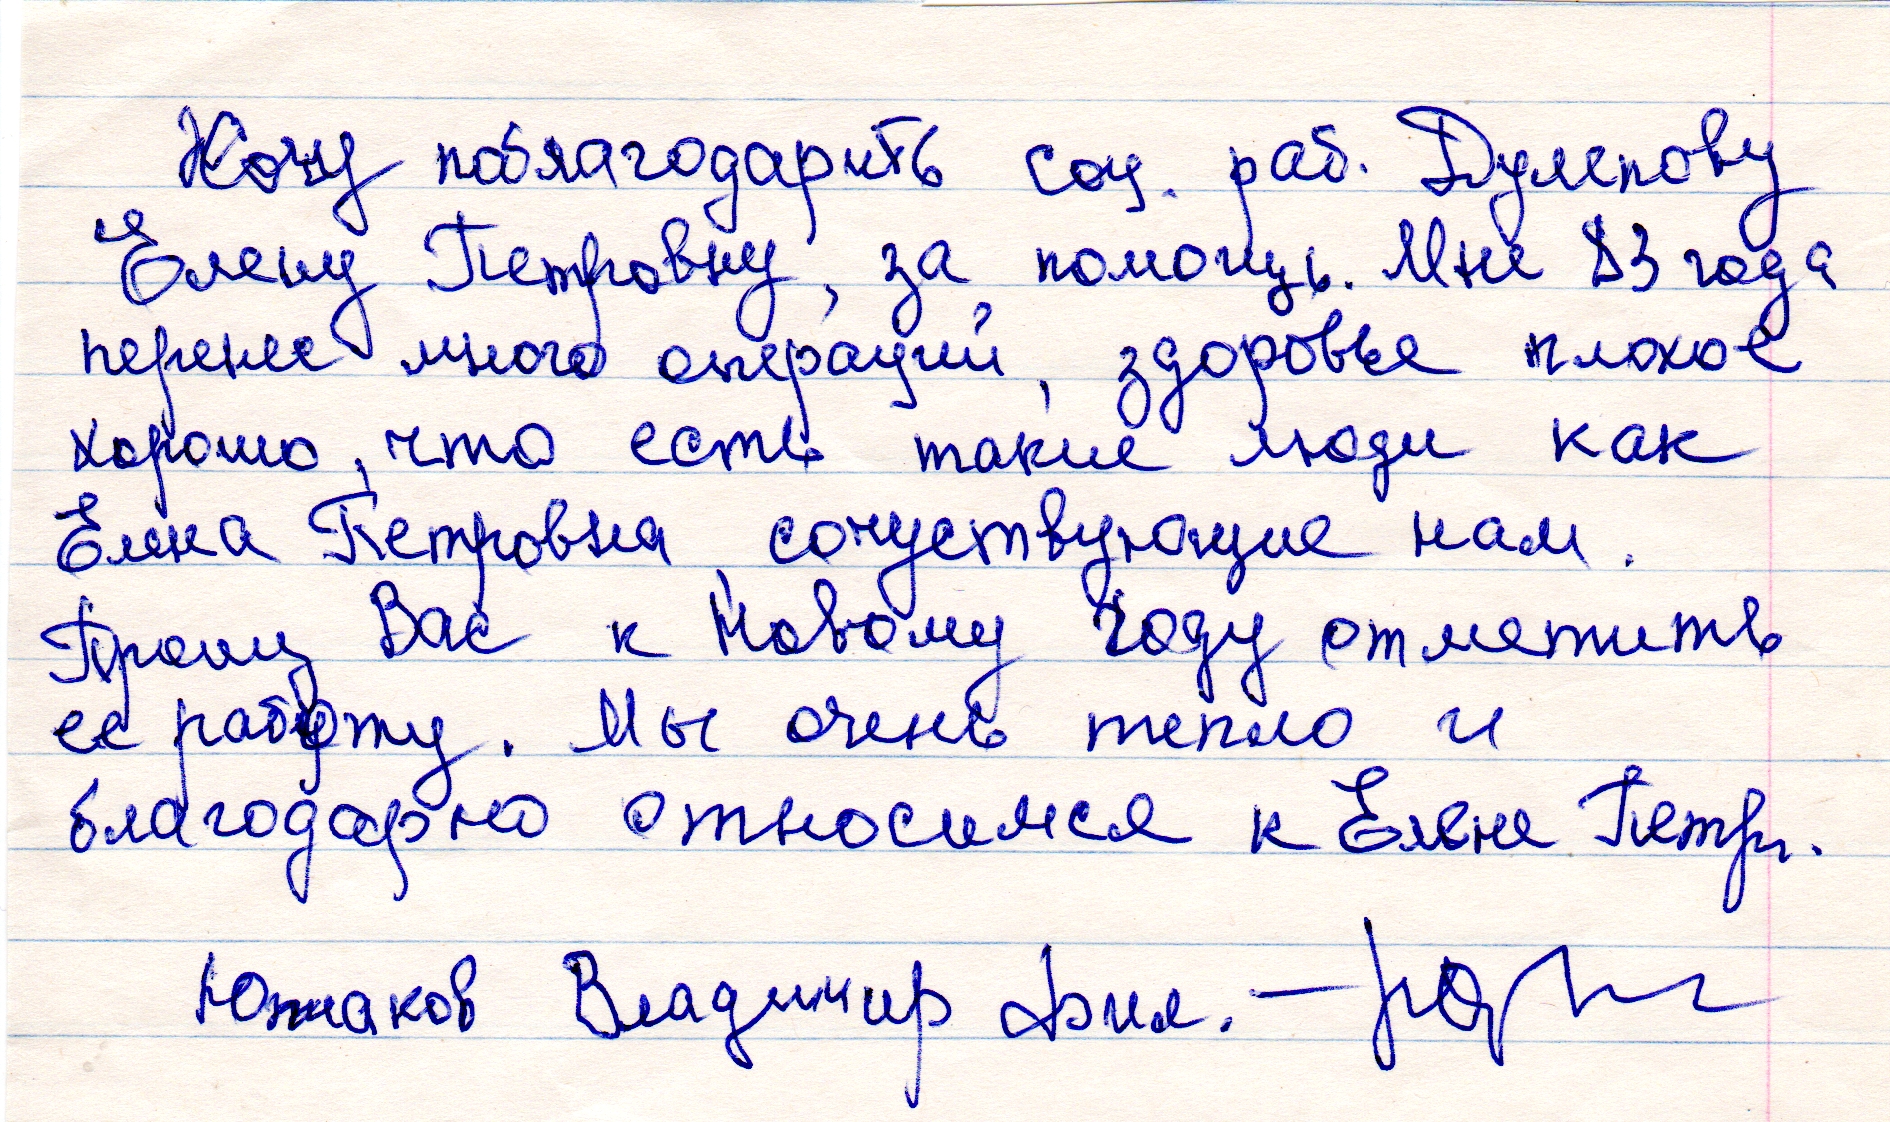 Хочу поблагодарить соц. раб. Дулепову
Елену Петровну, за помощь. Мне 83 года
перенес много операций, здоровье плохое
хорошо, что есть такие люди как
Елена Петровна, сочуствующие нам.
Прошу Вас к Новому Году отметить
ее работу. Мы очень тепло и
благодарно относимся к Елене Петр.
Южаков Владимир Фил.